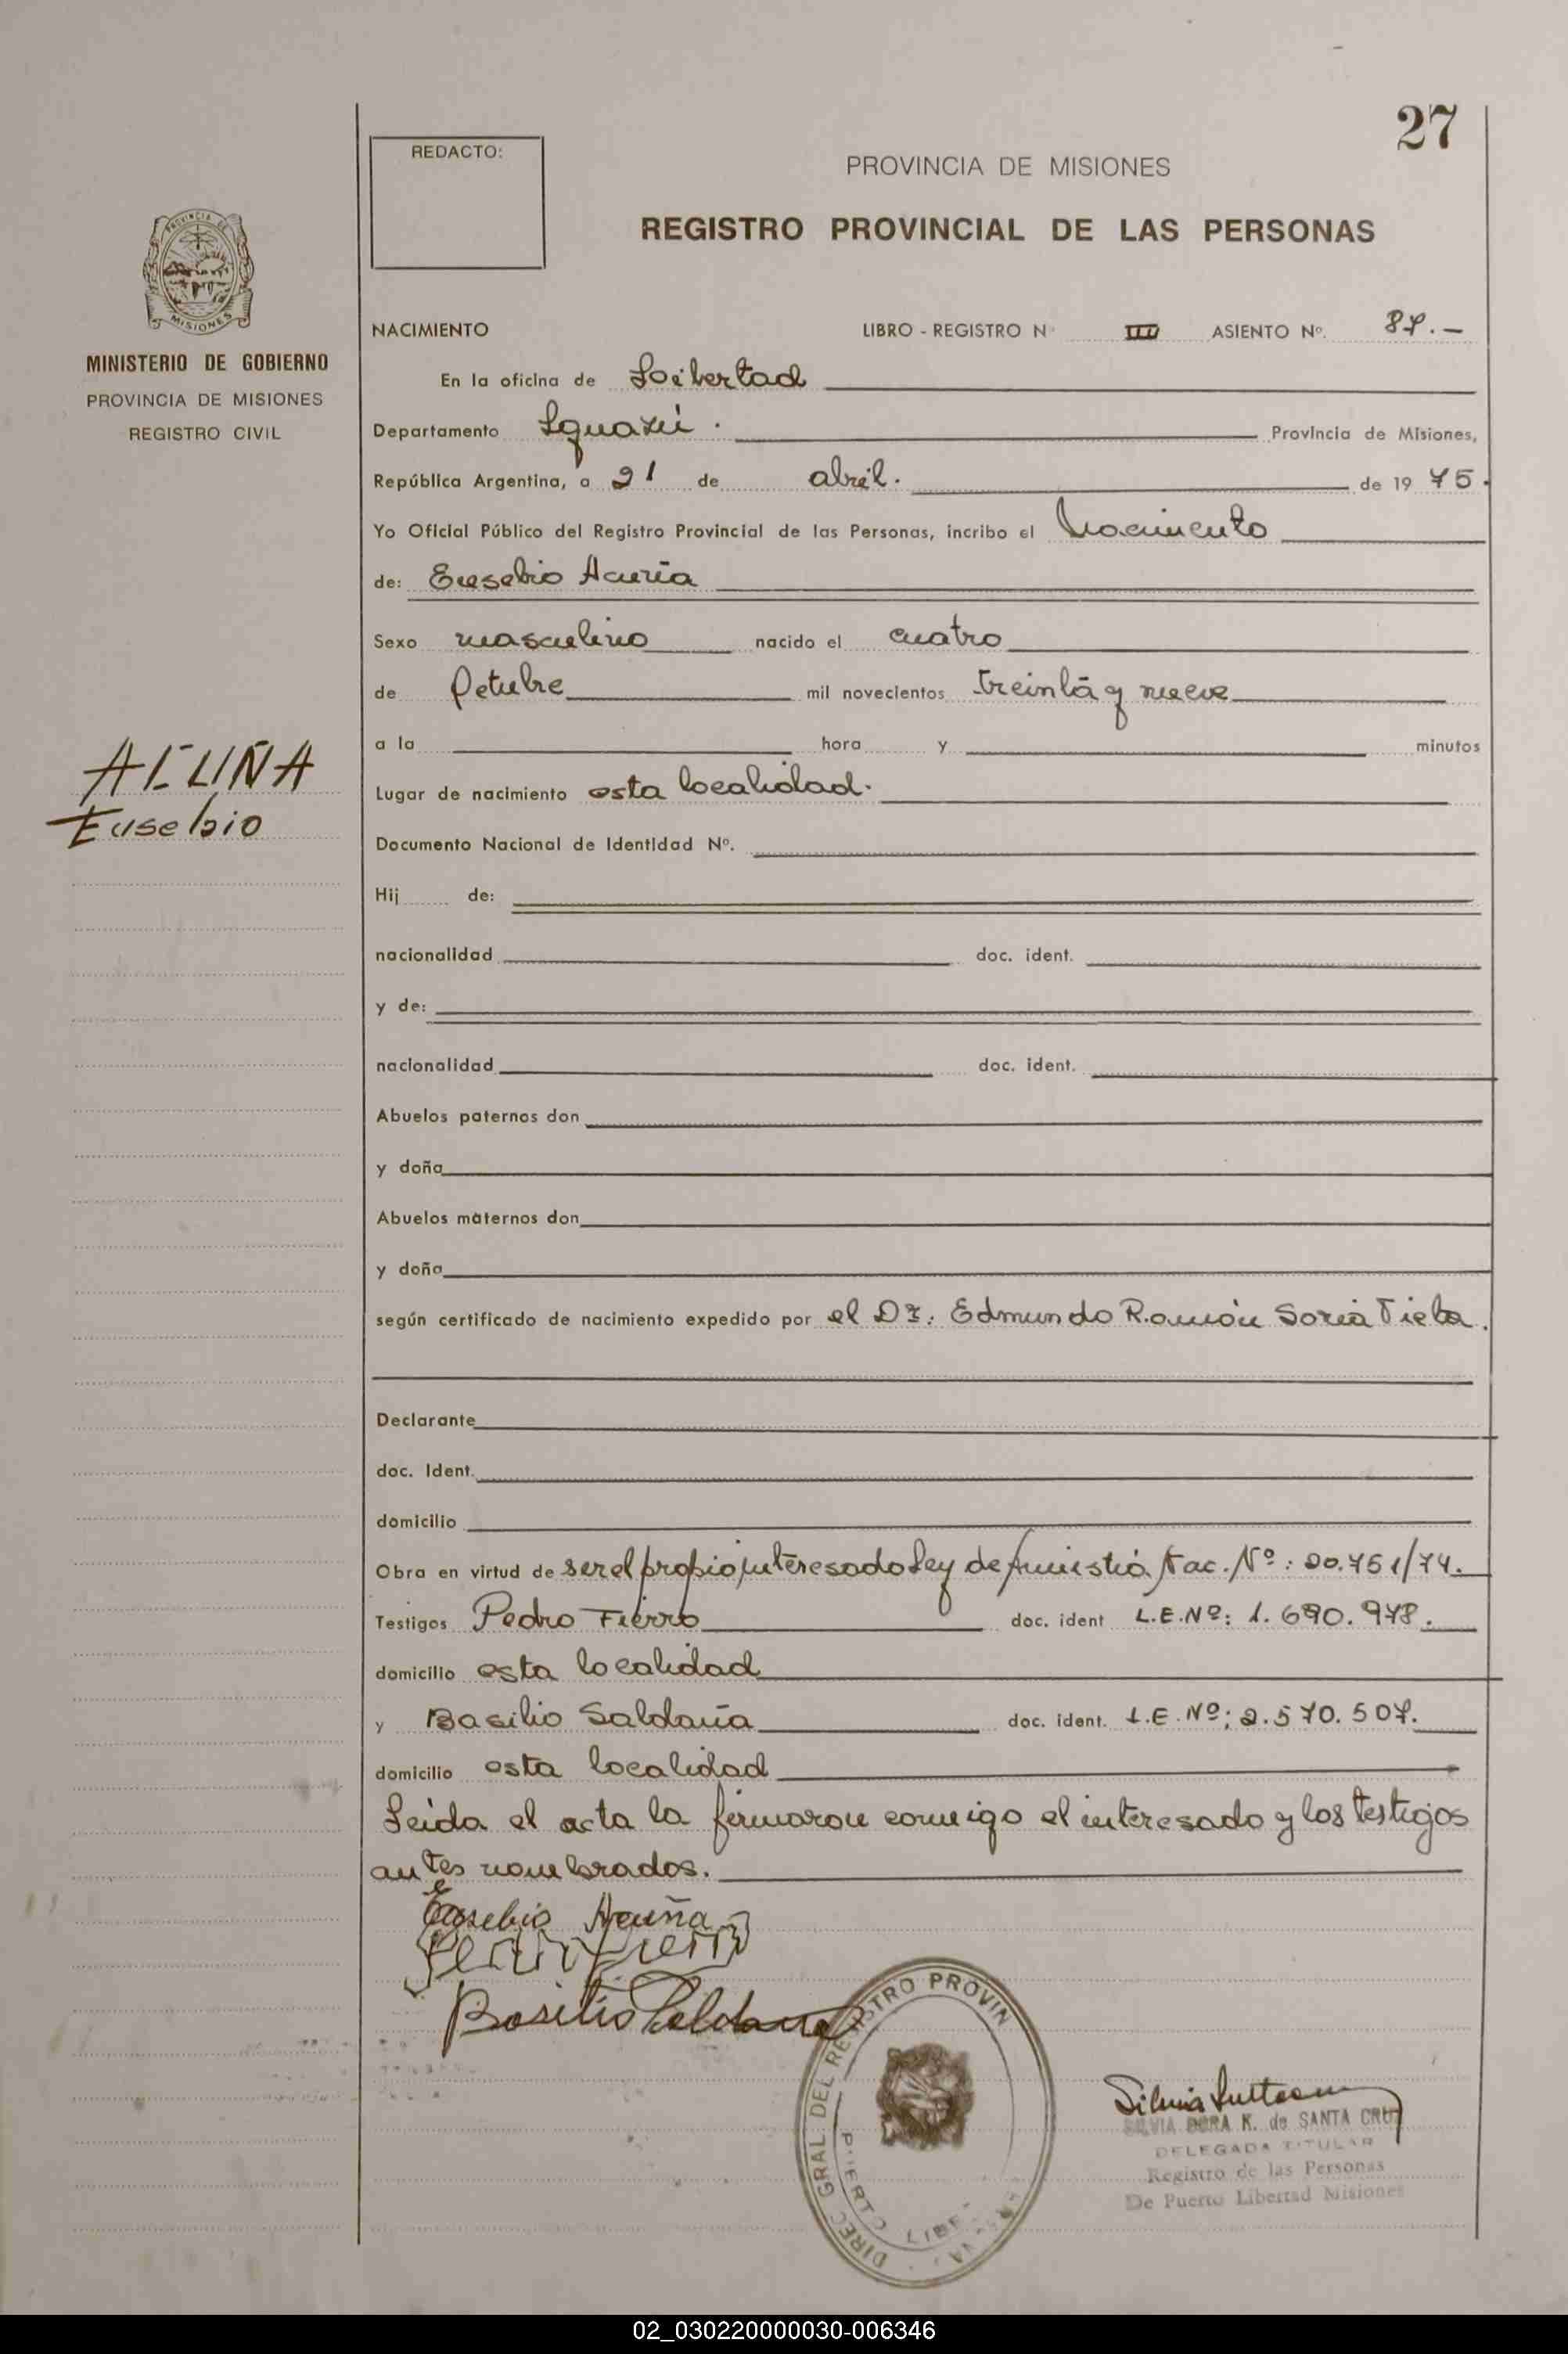 27
REDACTO:
PROVINCIA DE MISIONES
REGISTRO PROVINCIAL DE LAS PERSONAS
PROVINCIA DE
MISIONES
MINISTERIO DE GOBIERNO
PROVINCIA DE MISIONES
REGISTRO CIVIL
NACIMIENTO LIBRO - REGISTRO Nº III ASIENTO Nº. 87.-
En la oficina de Libertad
Departamento Iguazú. Provincia de Misiones,
República Argentina, a 21 de abril. de 19 75.
Yo Oficial Público del Registro Provincial de las Personas, incribo el Nacimiento
de: Eusebio Acuña
Sexo masculino nacido el cuatro
de Octubre mil novecientos treinta y nueve
a la hora y minutos
ACUÑA
Eusebio
Lugar de nacimiento esta localidad.
Documento Nacional de Identidad Nº.
Hij de:
nacionalidad doc. ident.
y de:
nacionalidad doc. ident.
Abuelos paternos don
y doña
Abuelos maternos don
y doña
según certificado de nacimiento expedido por el Dr. Edmundo Ramón Soria
Declarante
doc. Ident.
domicilio
Obra en virtud de ser el propio interesado Ley de Amnistía Nac. Nº: 20.751/74.
Testigos Pedro Fierro doc. ident L.E.Nº: 1.690.978.
domicilio esta localidad
y Basilio Saldaña doc. ident. L.E.Nº: 2.570.507.
domicilio esta localidad
Leída el acta la firmaron conmigo el interesado y los testigos
antes nombrados.
Eusebio Acuña
Pedro Fierro
Basilio Saldaña
DIREC GRAL. DEL REGISTRO PROVIN
PUERTO LIBE
SILVIA DORA K. de SANTA CRUZ
DELEGADA TITULAR
Registro de las Personas
De Puerto Libertad Misiones
02_030220000030-006346